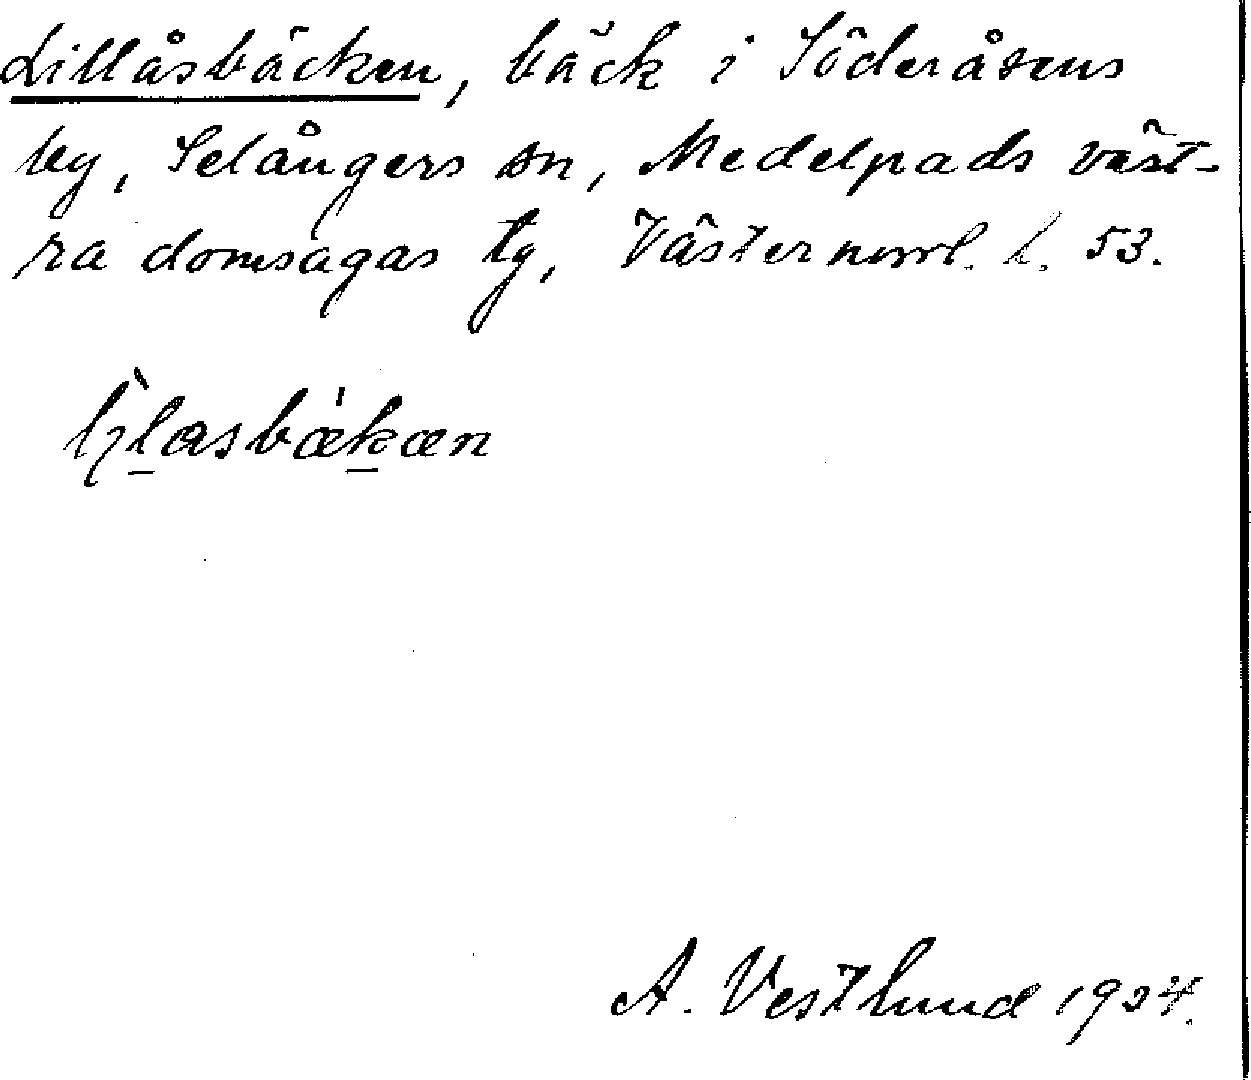 Lillåsbäcken, bäck i Söderåsens
by, Selångers sn, Medelpads väst-
ra domsagas tg, Västernorrl. l. 53.
A. Vestlund 1924.